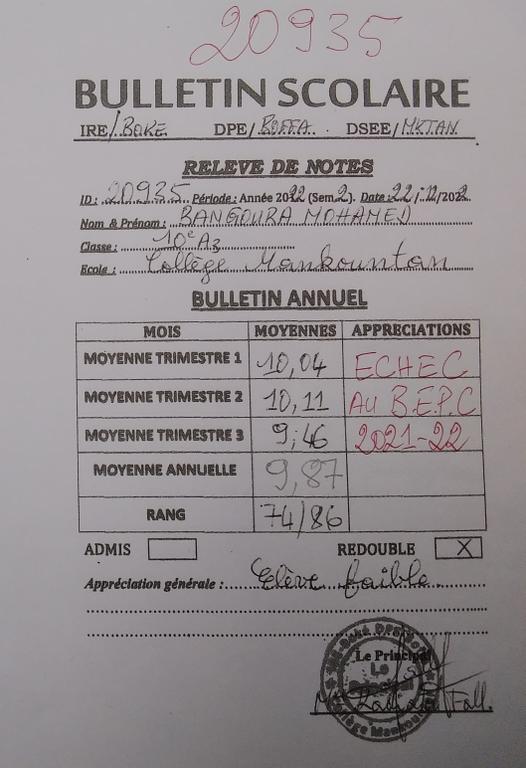 20935
BULLETIN SCOLAIRE
IRE/BOKE. DPE/BOFFA. DSEE/MKTAN.
RELEVE DE NOTES
ID: 20935 Période: Année 2022 (Sem 2). Date: 22/12/2022
Nom & Prénom: BANGOURA MOHAMED
Classe: 10e A2
Ecole: Collège Mankountan
BULLETIN ANNUEL
MOIS MOYENNES APPRECIATIONS
MOYENNE TRIMESTRE 1 10,04 ECHEC
MOYENNE TRIMESTRE 2 10,11 AU B.E.P.C
MOYENNE TRIMESTRE 3 9,46 2021-22
MOYENNE ANNUELLE 9,87
RANG 74/86
ADMIS REDOUBLE X
Appréciation générale: Elève faible
Le Principal
Le
Principal
Fall.